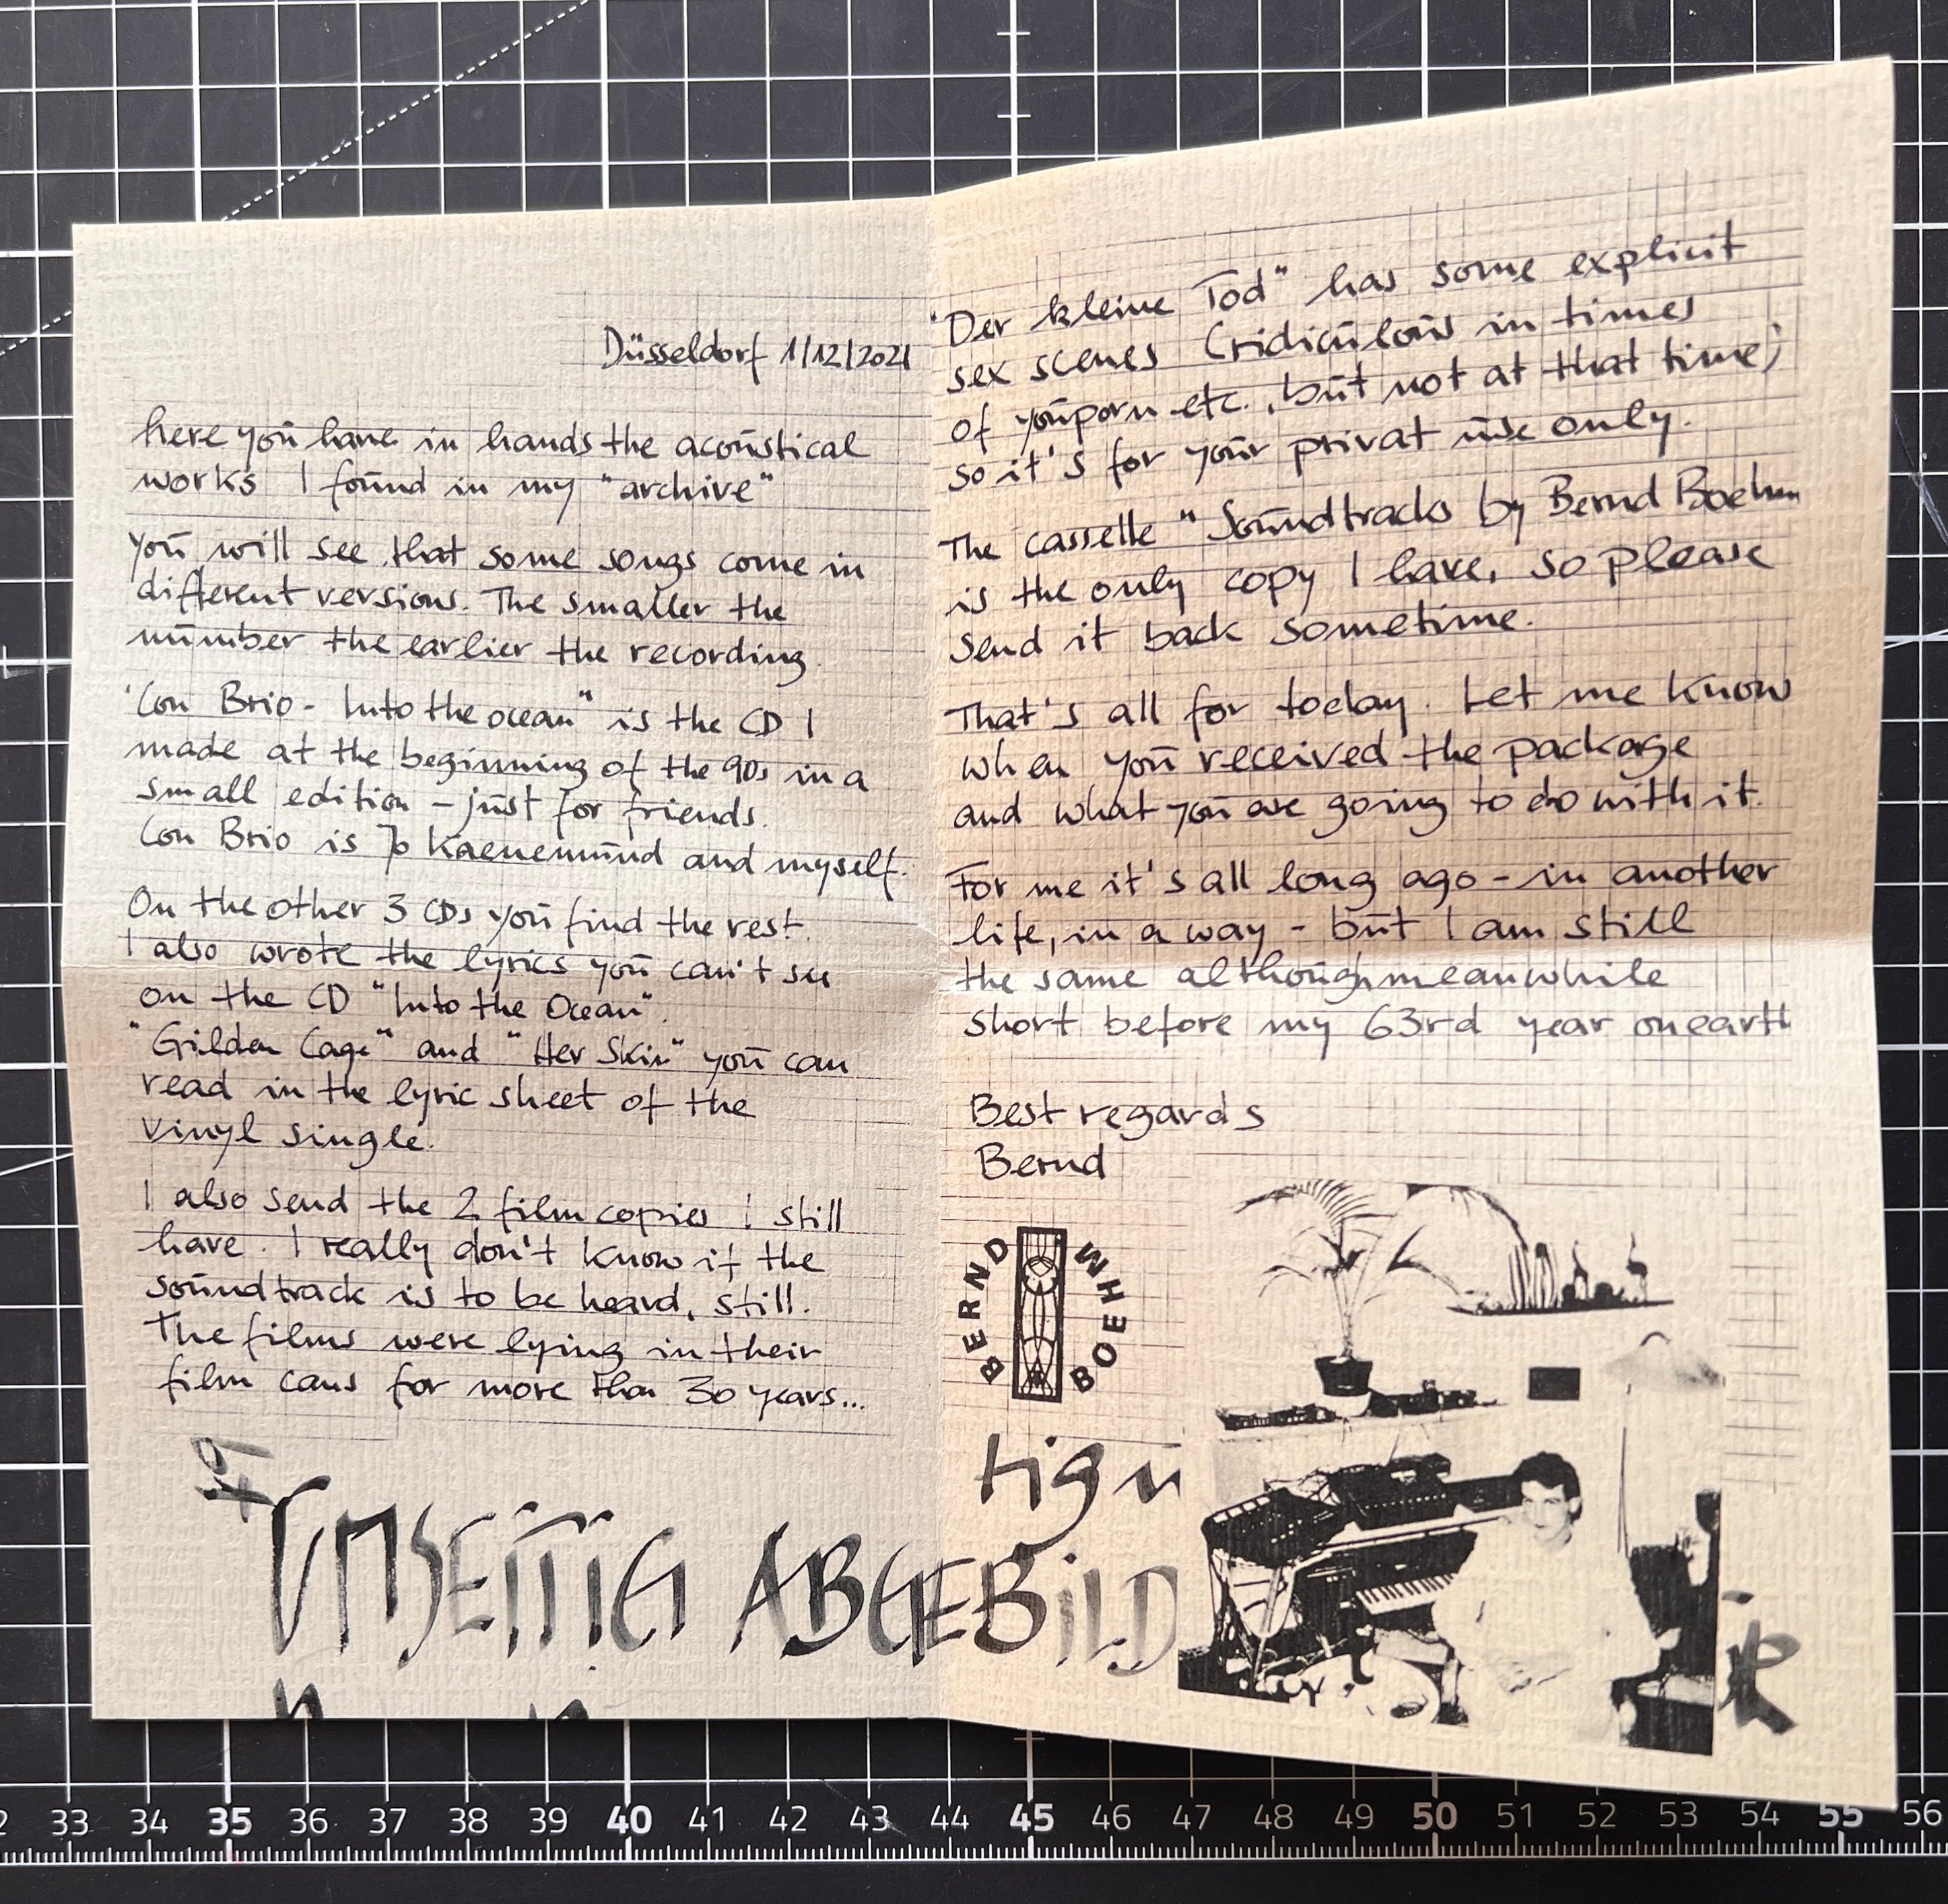 Düsseldorf 1/12/2021
here you have in hands the acoustical
works I found in my "archive"
You will see that some songs come in
different versions. The smaller the
number the earlier the recording.
"Con Brio - Into the ocean" is the CD I
made at the beginning of the 90s in a
small edition - just for friends.
Con Brio is Jo Kaenemund and myself.
On the other 3 CDs you find the rest.
I also wrote the lyrics you can't see
on the CD "Into the Ocean".
"Gilden Cage" and "Her Skin" you can
read in the lyric sheet of the
vinyl single.
I also send the 2 film copies I still
have. I really don't know if the
soundtrack is to be heard, still.
The films were lying in their
film cans for more than 30 years...
"Der kleine Tod" has some explicit
sex scenes (ridiculous in times
of youporn etc., but not at that time)
so it's for your privat use only.
The cassette "Soundtracks by Bernd Boehm
is the only copy I have, so please
send it back sometime.
That's all for today. Let me know
when you received the package
and what you are going to do with it.
For me it's all long ago - in another
life, in a way - but I am still
the same although meanwhile
short before my 63rd year on earth
Best regards
Bernd
BERND BOEHM
ABGEBILD
33 34 35 36 37 38 39 40 41 42 43 44 45 46 47 48 49 50 51 52 53 54 55 56